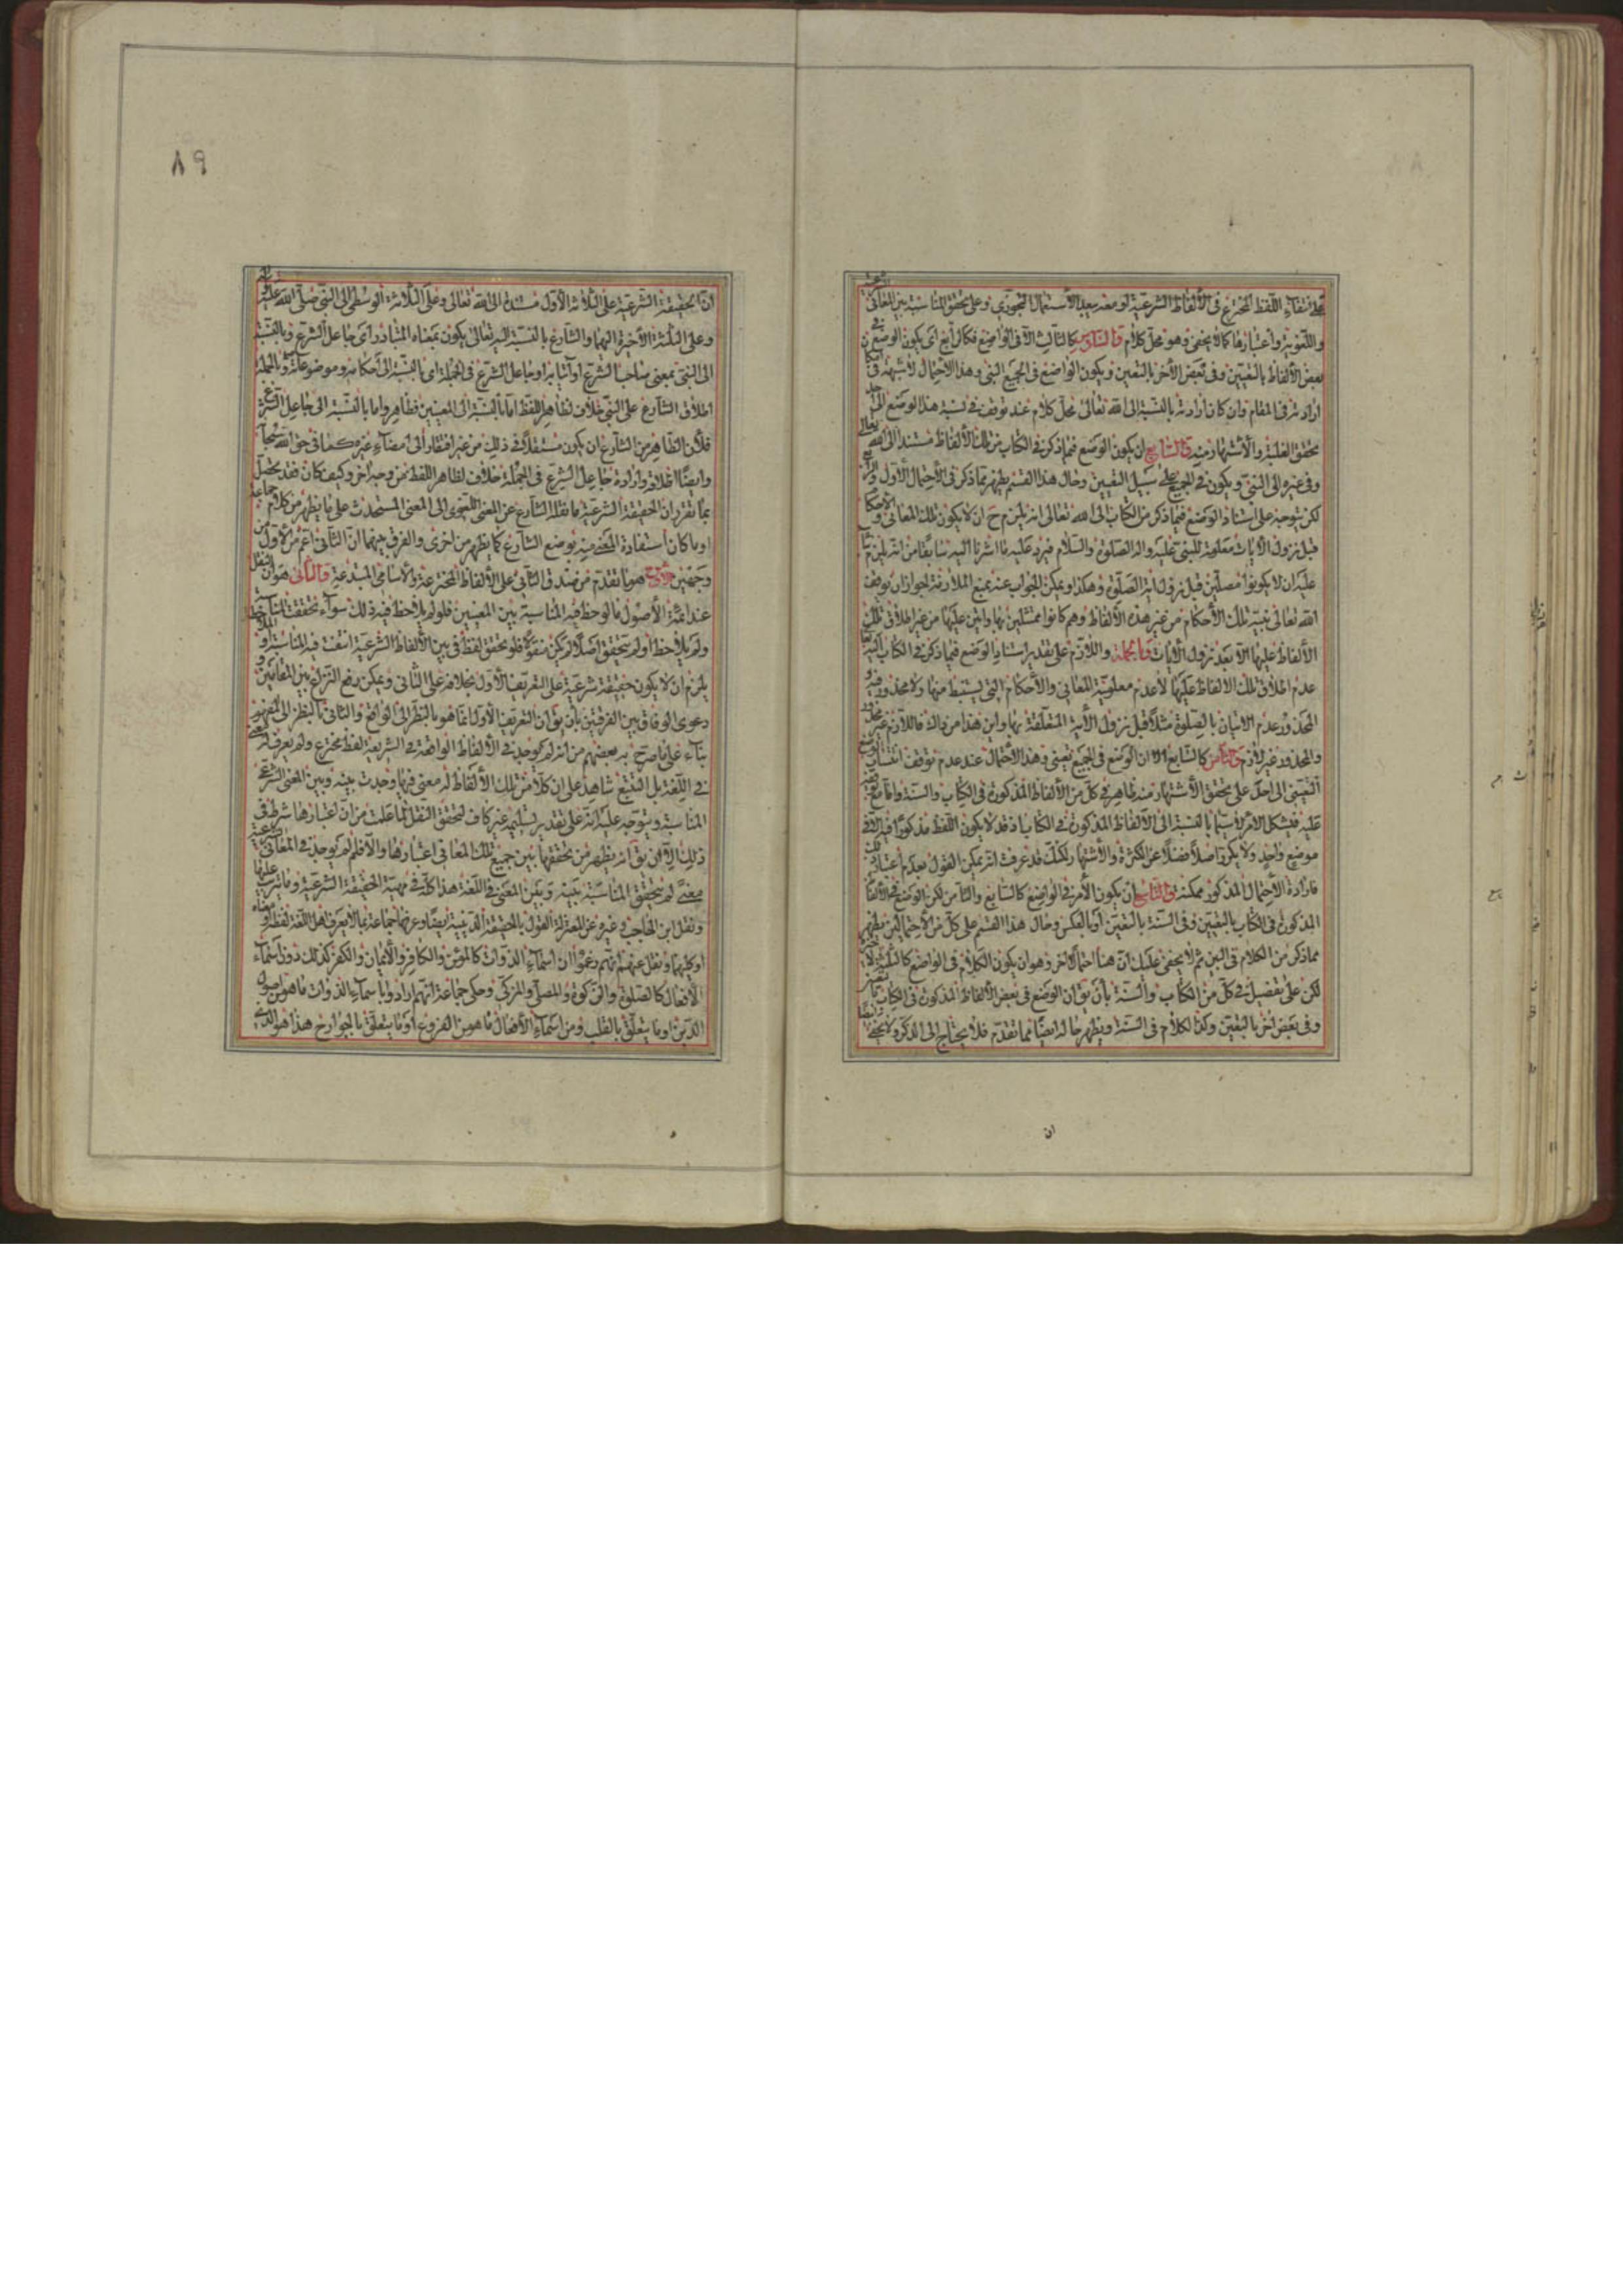 على انتفاء اللفظ المخترع في الألفاظ الشرعية لو معه بعيد الاستعمال التجوزي وعلى تحقق المناسبة بين المعاني الشرعية
واللغوية واعتبارها كما لا يخفى وهو محل كلام والسادس كالثالث الا في الواضع فكالرابع اى يكون الوضع في
بعض الألفاظ بالتعيين وفي بعض الأخر بالتعين ويكون الواضع في الجميع النبي وهذا الاحتمال لا شبهة في امكان
ارادته في المقام وان كان ارادته بالنسبة الى الله تعالى محل كلام عند توقف في نسبة هذا الوضع الى
تحقق الغلبة والاشتهار منه والسابع ان يكون الوضع فيما ذكر في الكتاب من تلك الألفاظ مستندا الى الله تعالى
وفي غيره الى النبي ويكون في الجميع على سبيل التعيين وحال هذا القسم يظهر بما ذكر في الاحتمال الأول والرابع
لكن يتوجه على استناد الوضع فيما ذكر من الكتاب الى الله تعالى انه يلزم ح ان لا يكون تلك المعاني والاحكام
قبل نزول الآيات معلومة للنبي عليه واله الصلوة والسلام فيرد عليه ما اشرنا اليه سابقا من انه يلزم بنا
عليه ان لا يكونوا مصلين قبل نزول اية الصلوة وهكذا ويمكن الجواب عنه بمنع الملازمة لجواز ان يوقف
الله تعالى نبيه تلك الأحكام من غير هذه الألفاظ وهم كانوا ممتثلين بها واتين عليها من غير اطلاق تلك
الألفاظ عليها الا بعد نزول الآيات وبالجملة واللازم على تقدير استناد الوضع فيما ذكر في الكتاب اليه تعالى
عدم اطلاق تلك الالفاظ عليها لا عدم معلومية المعاني والأحكام التي يستنبط منها ولا محذور فيه و
المحذور عدم الاتيان بالصلوة مثلا قبل نزول الآية المتعلقة بها واين هذا من ذاك فاللازم غير محذور
والمحذور غير لازم والثامن كالسابع الا ان الوضع في الجميع تعيني وهذا الاحتمال عند عدم توقف انتساب الوضع
التعيني الى احد على تحقق الاشتهار منه ظاهر في كل من الألفاظ المذكورة في الكتاب والسنة واما مع توقفه
عليه فيشكل الامر لا سيما بالنسبة الى الألفاظ المذكورة في الكتاب اذ قد لا يكون اللفظ مذكورا فيه الا في
موضع واحد ولا يكرر اصلا فضلا عن الكثرة والاشتهار ولكنك قد عرفت انه يمكن القول بعدم اعتبار ذلك
فارادة الاحتمال المذكور ممكنة والتاسع ان يكون الأمر في الواضع كالسابع والثامن لكن الوضع في الألفاظ
المذكورة في الكتاب بالتعيين وفي السنة بالتعين او بالعكس وحال هذا القسم على كل من الاحتمالين يظهر
مما ذكر من الكلام في البين ثم لا يخفى عليك ان هنا احتمالا اخر وهو ان يكون الكلام في الواضع كالثلثة الاخيرة
لكن على تفصيل في كل من الكتاب والسنة بأن يق ان الوضع في بعض الألفاظ المذكورة في الكتاب بالتعيين
وفي بعض اخر بالتعين وكذا الكلام في السنة ويظهر حاله ايضا مما تقدم فلا يحتاج الى الذكر ولا يخفى
ان
٨٩
ان الحقيقة الشرعية على الثلاثة الأول مستندة الى الله تعالى وعلى الثلاثة الوسطى الى النبي صلى الله عليه واله
وعلى الثلثة الأخيرة اليهما والشارع بالنسبة اليه تعالى يكون بمعناه المتبادر اى جاعل الشرع وبالنسبة
الى النبي بمعنى صاحب الشرع او آتيا به او جاعل الشرع في الجملة اى بالنسبة الى احكامه وموضوعاته وبالجملة
اطلاق الشارع على النبي خلاف لظاهر اللفظ اما بالنسبة الى المعنيين فظاهر واما بالنسبة الى جاعل الشرع
فلأن الظاهر من الشارع ان يكون مستقلا في ذلك من غير افتقار الى امضاء غيره كما في حق الله سبحانه
وايضا اطلاقه وارادة جاعل الشرع في الجملة خلاف لظاهر اللفظ من وجه اخر وكيف كان فقد تحصل
بما تقرر ان الحقيقة الشرعية ما نقله الشارع عن المعنى اللغوي الى المعنى المستحدث على ما يظهر من كلام جماعة
او ما كان استفادة المعنى منه بوضع الشارع كما يظهر من اخرى والفرق بينهما ان الثاني اعم من الأول من
وجهين الأول هو ما تقدم من صدق الثاني على الألفاظ المخترعة والأسامي المبتدعة والثاني هو ان النقل
عند ائمة الأصول ما لوحظ فيه المناسبة بين المعنيين فلو لم يلاحظ فيه ذلك سواء تحققت المناسبة
ولم يلاحظ او لم يتحقق اصلا لم يكن منقولا فلو تحقق لفظ في بين الألفاظ الشرعية انتفت فيه المناسبة او
يلزم ان لا يكون حقيقة شرعية على التعريف الأول بخلافه على الثاني ويمكن رفع النزاع بين المقامين و
دعوى الوفاق بين الفرقتين بأن يق ان التعريف الأول انما هو بالنظر الى الواقع والثاني بالنظر الى المفهوم
بناء على ما صرح به بعضهم من انه لم يوجد في الألفاظ الواقعة في الشريعة لفظ مخترع ولم يعرف له معنى
في اللغة بل التتبع شاهد على ان كلا من تلك الألفاظ له معنى فيها وجدت بينه وبين المعنى الشرعي
المناسبة ويتوجه عليه انه على تقدير تسليمه غير كاف لتحقق النقل لما علمت من ان اعتبارها شرط في
ذلك الا ان يق انه يظهر من تحققها بين جميع تلك المعاني اعتبارها والا فلم لم يوجد في المعاني الشرعية
معنى لم يتحقق المناسبة بينه وبين المعنى في اللغة هذا كله في مهية الحقيقة الشرعية وما يترتب عليها
ونقل ابن الحاجب وغيره عن المعتزلة القول بالحقيقة الدينية ايضا وعرفها جماعة بما لا يعرف اهل اللغة لفظه او معناه
او كليهما ونقل عنهم انهم زعموا ان اسماء الذوات كالمؤمن والكافر والأيمان والكفر كذلك دون اسماء
الأفعال كالصلوة والزكوة والمصلي والمزكي وحكى جماعة انهم ارادوا باسماء الذوات ما هو من اصول
الدين او ما يتعلق بالقلب ومن اسماء الأفعال ما هو من الفروع او ما يتعلق بالجوارح هذا هو الذي